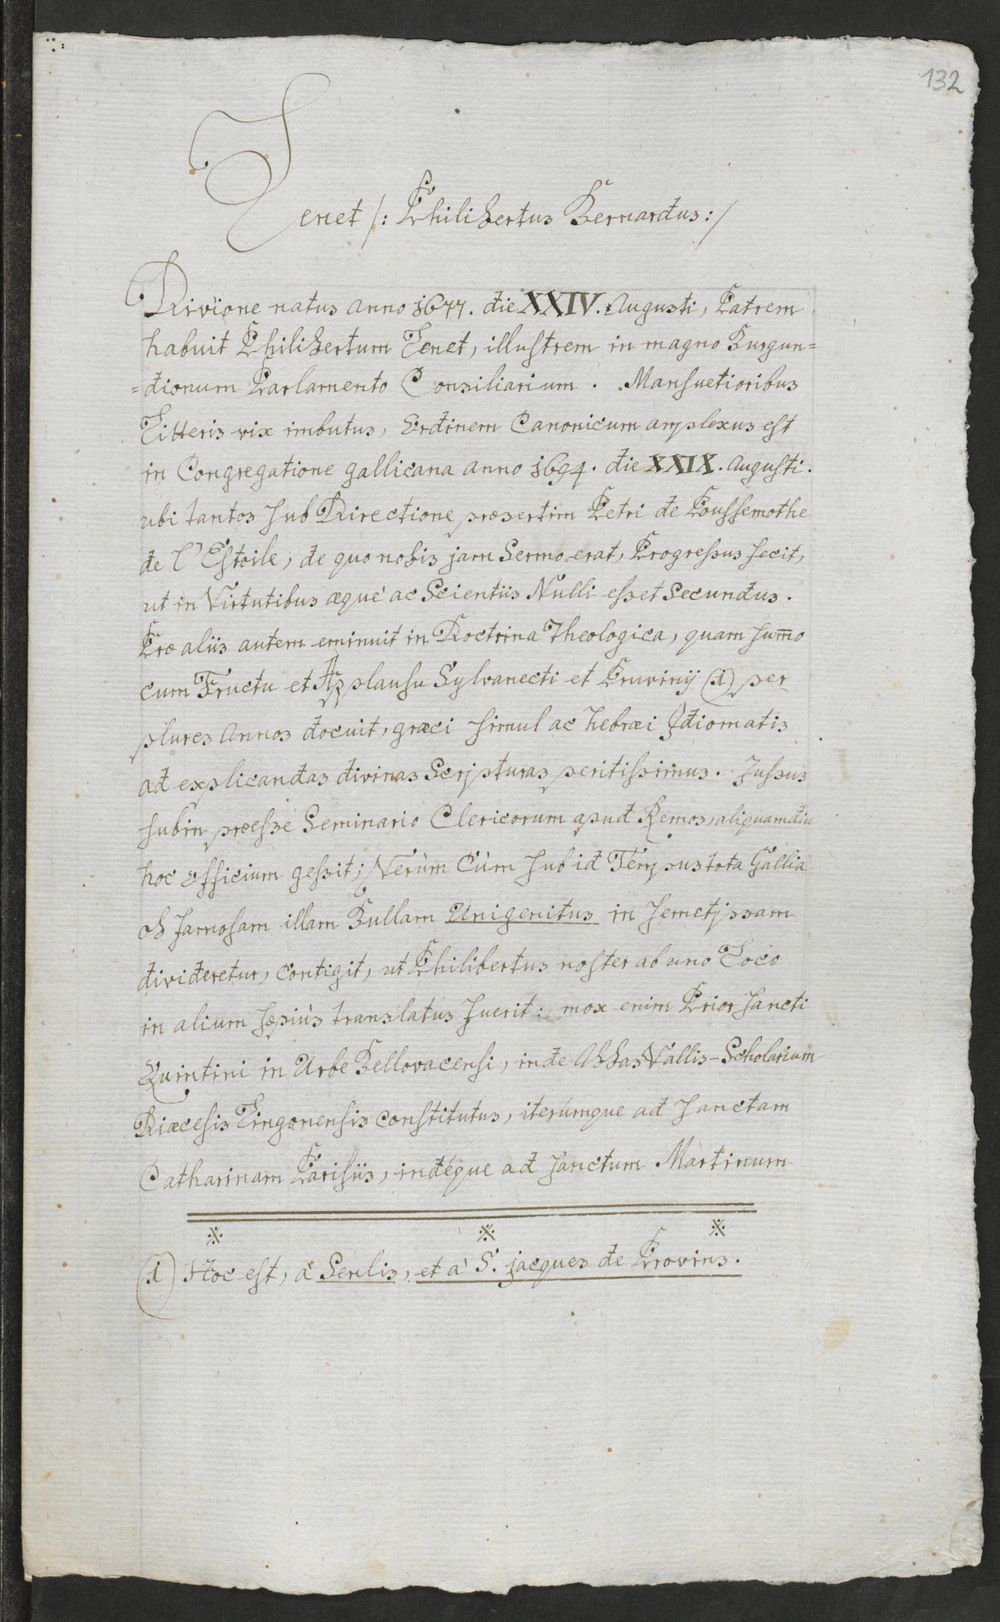 132
Lenet /: Philibertus Bernardus :/
Divione natus anno 1677. die XXIV. Augusti, Patrem
habuit Philibertum Lenet, illustrem in magno Burgun=
=dionum Parlamento Consiliarium. Mansuetioribus
Litteris vix imbutus, Ordinem Canonicum amplexus est
in Congregatione gallicana anno 1694. die XXIX. Augusti.
ubi tantos sub Directione præsertim Petri de Poussemothe
de l'Estoile, de quo nobis jam Sermo erat, Progressus fecit,
ut in Virtutibus æque ac Scientiis Nulli esset Secundus.
Præ aliis autem eminuit in Doctrina Theologica, quam sum̄o
cum Fructu et Applausu Sylvanecti et Pruvinij (a) per
plures Annos docuit, græci simul ac hebræi Idiomatis
ad explicandas divinas Scripturas peritissimus. Jussus
subin præesse Seminario Clericorum apud Remos, aliquamdiu
hoc Officium gessit; Verùm Cùm sub id Tempus tota Gallia
ob famosam illam Bullam Unigenitus in semetipsam
divideretur, contigit, ut Philibertus noster ab uno Loco
in alium sæpiùs translatus fuerit: mox enim Prior sancti
Quintini in Urbe Bellovacensi, inde Abbas Vallis-Scholarium
Diæcesis Lingonensis constitutus, iterúmque ad sanctam
Catharinam Parisiis, indéque ad sanctum Martinum
(a) Hoc est, à Senlis, et à S. jacques de Provins.